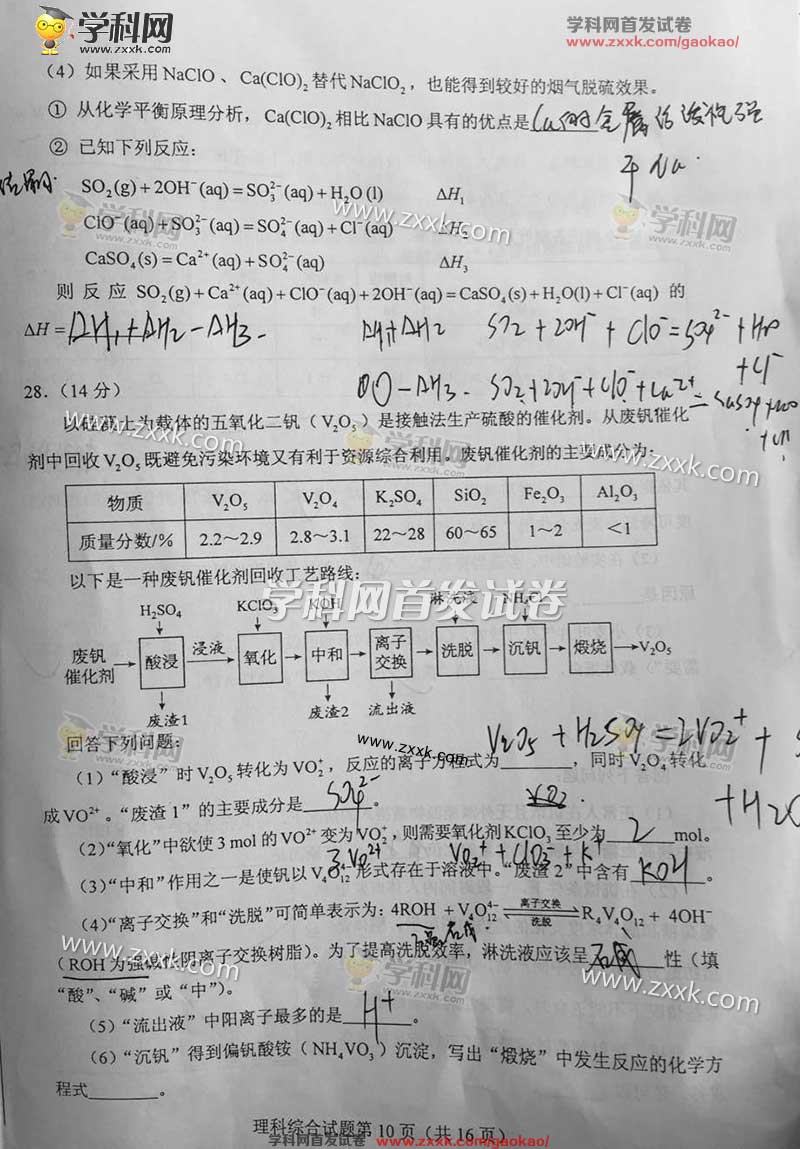 学科网
www.zxxk.com
学科网首发试卷
www.zxxk.com/gaokao/
(4) 如果采用 NaClO、Ca(ClO)₂ 替代 NaClO₂，也能得到较好的烟气脱硫效果。
① 从化学平衡原理分析，Ca(ClO)₂ 相比 NaClO 具有的优点是 Ca的金属活泼性强
于Na.
② 已知下列反应：
SO₂(g)+2OH⁻(aq)=SO₃²⁻(aq)+H₂O(l) ΔH₁
ClO⁻(aq)+SO₃²⁻(aq)=SO₄²⁻(aq)+Cl⁻(aq) ΔH₂
CaSO₄(s)=Ca²⁺(aq)+SO₄²⁻(aq) ΔH₃
则反应 SO₂(g)+Ca²⁺(aq)+ClO⁻(aq)+2OH⁻(aq)=CaSO₄(s)+H₂O(l)+Cl⁻(aq) 的
ΔH=ΔH₁+ΔH₂-ΔH₃. ΔH₁+ΔH₂ SO₂+2OH⁻+ClO⁻=SO₄²⁻+H₂O
+Cl⁻
-ΔH₃. SO₂+2OH⁻+ClO⁻+Ca²⁺
28．（14 分）
以硅藻土为载体的五氧化二钒（V₂O₅）是接触法生产硫酸的催化剂。从废钒催化
剂中回收 V₂O₅ 既避免污染环境又有利于资源综合利用。废钒催化剂的主要成分为：
物质 V₂O₅ V₂O₄ K₂SO₄ SiO₂ Fe₂O₃ Al₂O₃
质量分数/% 2.2～2.9 2.8～3.1 22～28 60～65 1～2 ＜1
以下是一种废钒催化剂回收工艺路线：
学科网首发试卷
H₂SO₄ KClO₃ KOH 淋洗液 NH₄Cl
废钒催化剂 酸浸 浸液 氧化 中和 离子交换 洗脱 沉钒 煅烧 V₂O₅
废渣1 废渣2 流出液
V₂O₅+H₂SO₄=2VO₂⁺+
+H₂O
回答下列问题：
(1)“酸浸”时 V₂O₅ 转化为 VO₂⁺，反应的离子方程式为________，同时 V₂O₄ 转化
成 VO²⁺。“废渣 1”的主要成分是 SO₄²⁻。
(2)“氧化”中欲使 3 mol 的 VO²⁺ 变为 VO₂⁺，则需要氧化剂 KClO₃ 至少为 2 mol。
3VO²⁺ VO₂⁺+ClO₃⁻+K⁺
(3)“中和”作用之一是使钒以 V₄O₁₂⁴⁻ 形式存在于溶液中。“废渣 2”中含有 KOH。
(4)“离子交换”和“洗脱”可简单表示为：4ROH+V₄O₁₂⁴⁻ 离子交换 ⇌ 洗脱 R₄V₄O₁₂+4OH⁻
（ROH 为强碱性阴离子交换树脂）。为了提高洗脱效率，淋洗液应该呈 碱 性（填
“酸”、“碱”或“中”）。
(5)“流出液”中阳离子最多的是 H⁺。
(6)“沉钒”得到偏钒酸铵（NH₄VO₃）沉淀，写出“煅烧”中发生反应的化学方
程式________。
理科综合试题第 10 页（共 16 页）
学科网首发试卷 www.zxxk.com/gaokao/